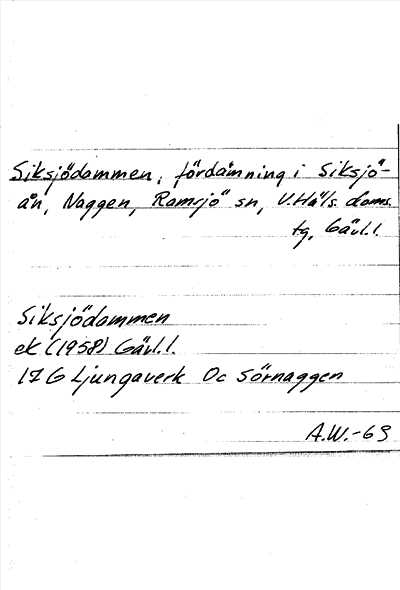 Siksjödammen, fördämning i Siksjö-
ån, Naggen, Ramsjö sn, V.Häls. doms.
tg, Gävl.l.
Siksjödammen
ek (1958) Gävl.l.
17G Ljungaverk 0c Sörnaggen
A.W.-63